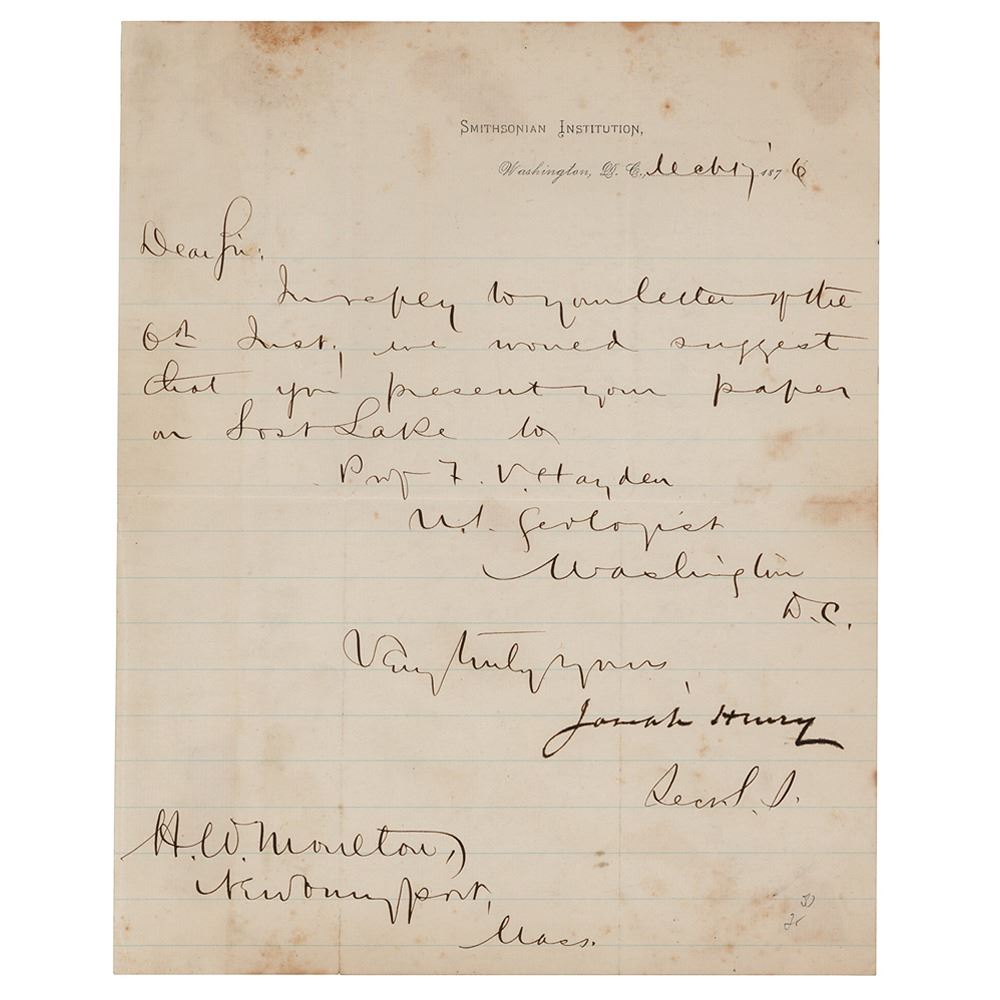 SMITHSONIAN INSTITUTION,
Washington, D. C., Mch 17 1876
Dear Sir:
In reply to your letter of the
6th Inst, we would suggest
that you present your paper
on Lost Lake to
Prof F. V. Hayden
U.S. Geologist
Washington
D.C.
Very truly yours
Joseph Henry
Secr S. I.
H. W. Moulton,
Newburyport,
Mass.